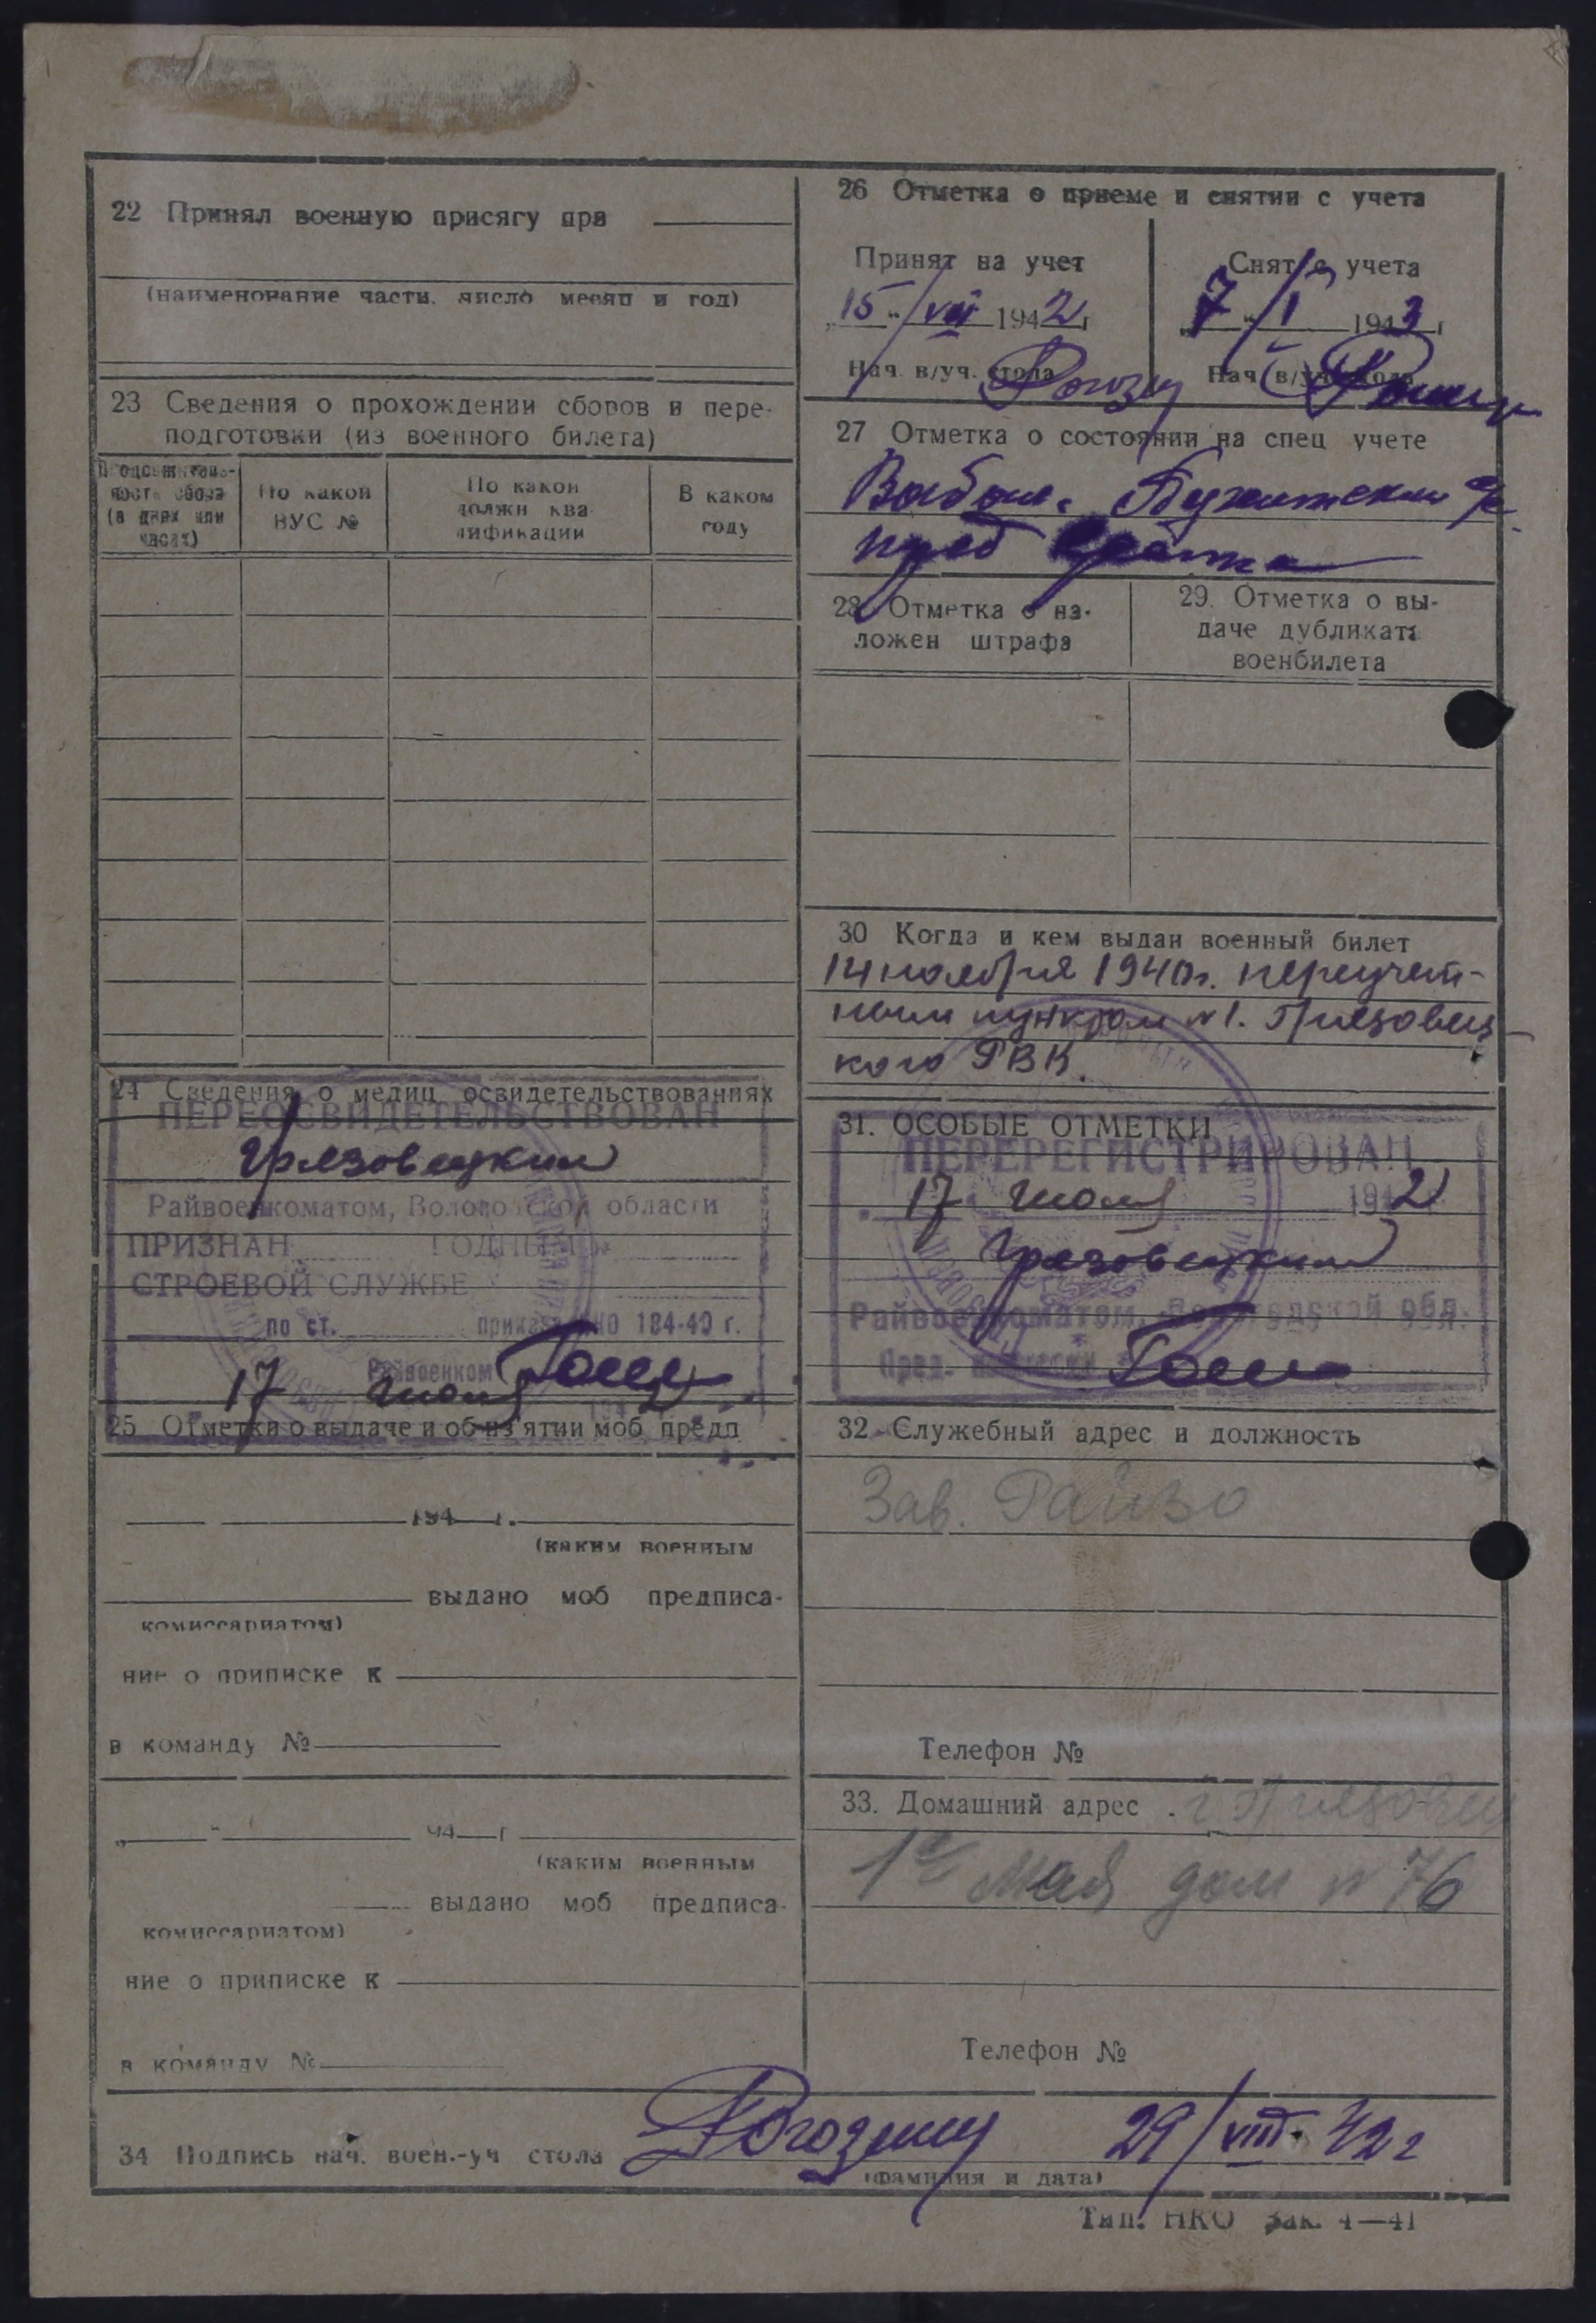 22 Принял военную присягу при
(наименование части, число месяц и год)
23 Сведения о прохождении сборов и пере-
подготовки (из военного билета)
Продолжитель-
ность сбора
(в днях или
часах)
По какой
ВУС №
По какой
должн ква-
лификации
В каком
году
24 Сведения о медиц освидетельствованиях
ПЕРЕОСВИДЕТЕЛЬСТВОВАН
Грязовецким
Райвоенкоматом, Вологодской области
ПРИЗНАН ГОДНЫМ к
СТРОЕВОЙ СЛУЖБЕ
по ст. приказа НКО 184-40 г.
Райвоенком
17 июля
25 Отметки о выдаче и об из'ятии моб предп
194 г.
(каким военным
выдано моб предписа-
комиссариатом)
ние о приписке к
в команду №
„ “ 94 г
(каким военным
выдано моб предписа-
комиссариатом)
ние о приписке к
в команду №
26 Отметка о приеме и снятии с учета
Принят на учет
„15“ VII 1942 г
Нач в/уч. стола
Снят с учета
„7“ I 1943 г
Нач в/уч стола
27 Отметка о состоянии на спец учете
28 Отметка о на-
ложен штрафа
29. Отметка о вы-
даче дубликата
военбилета
30 Когда и кем выдан военный билет
14 ноября 1940г. переучет-
ным пунктом №1. Грязовец-
кого РВК.
31. ОСОБЫЕ ОТМЕТКИ
ПЕРЕРЕГИСТРИРОВАН
17 июля 1942
Грязовецким
Райвоенкоматом, Вологодской обл.
Пред. комиссии
32. Служебный адрес и должность
Зав. Райзо
Телефон №
33. Домашний адрес . г. Грязовец
1е Мая дом № 76
Телефон №
34 Подпись нач. воен.-уч стола Рогозину 29/VIII 42 г
(фамилия и дата)
Тип. НКО Зак. 4—41